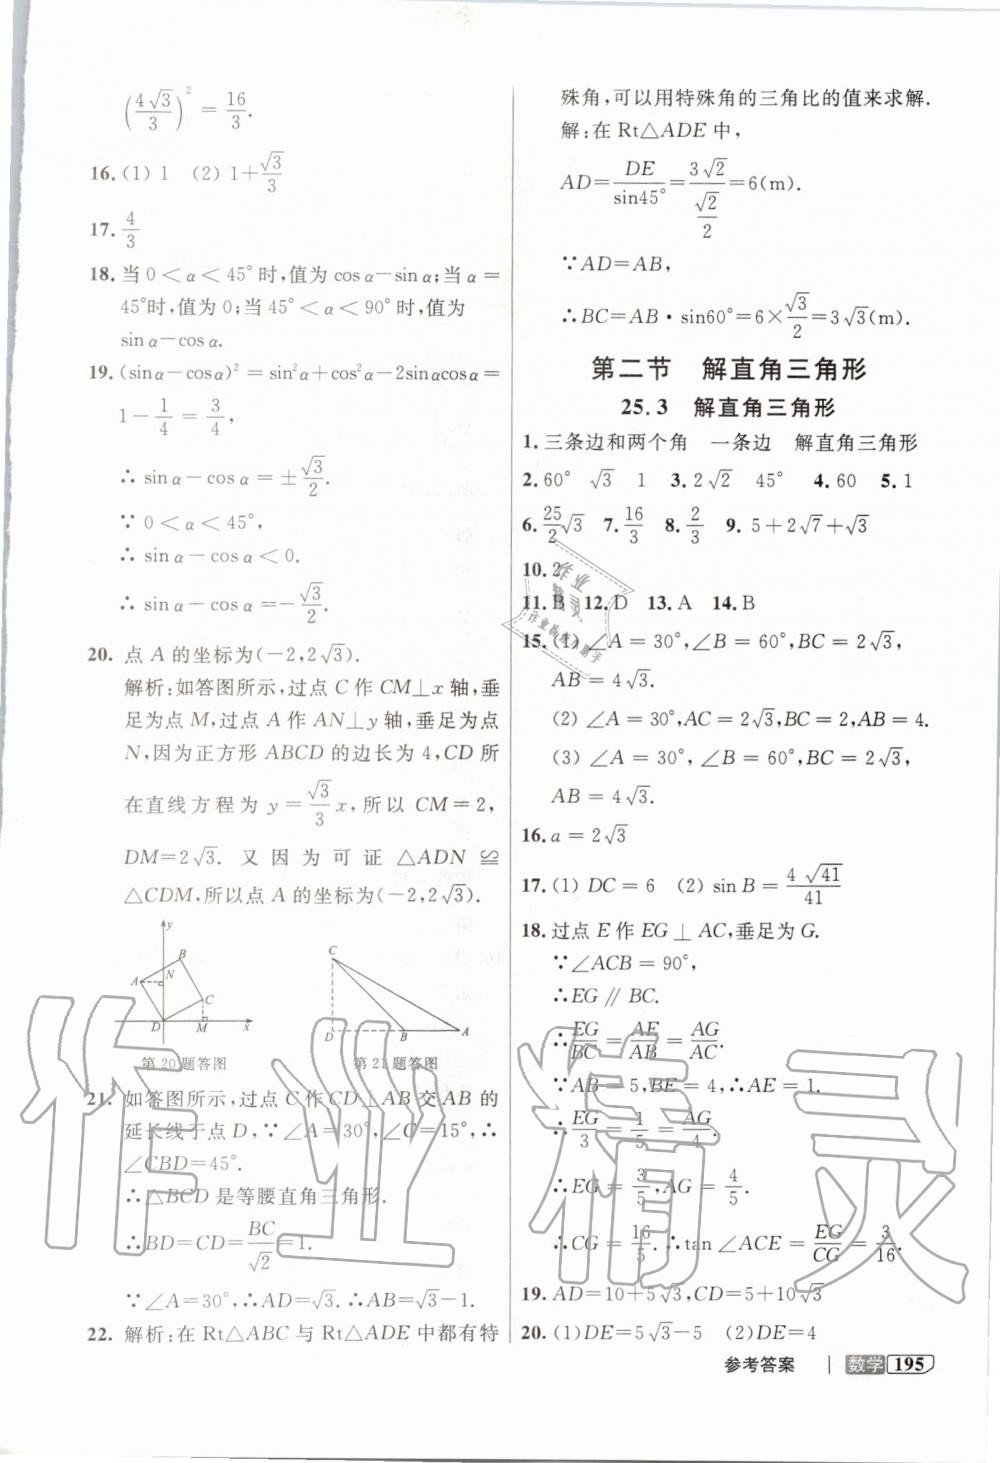 (4√3/3)² = 16/3.
16. (1) 1 (2) 1+√3/3
17. 4/3
18. 当 0＜α＜45°时,值为 cosα－sinα;当 α＝
45°时,值为 0;当 45°＜α＜90°时,值为
sinα－cosα.
19. (sinα－cosα)²＝sin²α＋cos²α－2sinαcosα＝
1－1/4＝3/4,
∴sinα－cosα＝±√3/2.
∵0＜α＜45°,
∴sinα－cosα＜0.
∴sinα－cosα＝－√3/2.
20. 点 A 的坐标为(－2,2√3).
解析:如答图所示,过点 C 作 CM⊥x 轴,垂
足为点 M,过点 A 作 AN⊥y 轴,垂足为点
N,因为正方形 ABCD 的边长为 4,CD 所
在直线方程为 y＝√3/3 x,所以 CM＝2,
DM＝2√3. 又因为可证 △ADN ≌
△CDM,所以点 A 的坐标为(－2,2√3).
y
B
A
N
C
D
M
x
第20题答图
C
D
B
A
第21题答图
21. 如答图所示,过点 C 作 CD⊥AB 交 AB 的
延长线于点 D,∵∠A＝30°,∠C＝15°,∴
∠CBD＝45°.
∴△BCD 是等腰直角三角形.
∴BD＝CD＝BC/√2＝1.
∵∠A＝30°,∴AD＝√3.∴AB＝√3－1.
22. 解析:在 Rt△ABC 与 Rt△ADE 中都有特
殊角,可以用特殊角的三角比的值来求解.
解:在 Rt△ADE 中,
AD＝DE/sin45°＝3√2/(√2/2)＝6(m).
∵AD＝AB,
∴BC＝AB·sin60°＝6×√3/2＝3√3(m).
第二节 解直角三角形
25.3 解直角三角形
1. 三条边和两个角 一条边 解直角三角形
2. 60° √3 1 3. 2√2 45° 4. 60 5. 1
6. 25/2 √3 7. 16/3 8. 2/3 9. 5＋2√7＋√3
10. 2
11. B 12. D 13. A 14. B
15. (1) ∠A＝30°,∠B＝60°,BC＝2√3,
AB＝4√3.
(2) ∠A＝30°,AC＝2√3,BC＝2,AB＝4.
(3) ∠A＝30°,∠B＝60°,BC＝2√3,
AB＝4√3.
16. a＝2√3
17. (1) DC＝6 (2) sinB＝4√41/41
18. 过点 E 作 EG⊥AC,垂足为 G.
∵∠ACB＝90°,
∴EG∥BC.
∴EG/BC＝AE/AB＝AG/AC.
∵AB＝5,BE＝4,∴AE＝1.
∴EG/3＝1/5＝AG/4.
∴EG＝3/5,AG＝4/5.
∴CG＝16/5.∴tan∠ACE＝EG/CG＝3/16.
19. AD＝10＋5√3,CD＝5＋10√3
20. (1)DE＝5√3－5 (2)DE＝4
参考答案 | 数学 195
作业精灵
作业
精灵